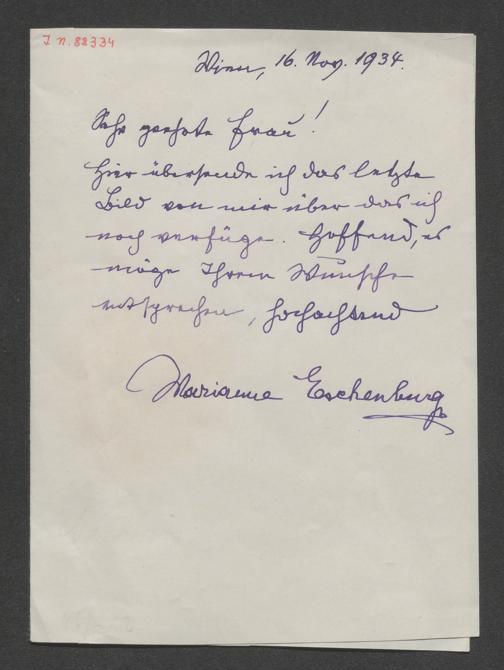 I n. 88334
Wien, 16. Nov. 1934.
Sehr geehrte Frau!
Hier übersende ich das letzte
Bild von mir über das ich
noch verfüge. Hoffend, es
möge Ihrem Wunsche
entsprechen, hochachtend
Marianne Eschenburg